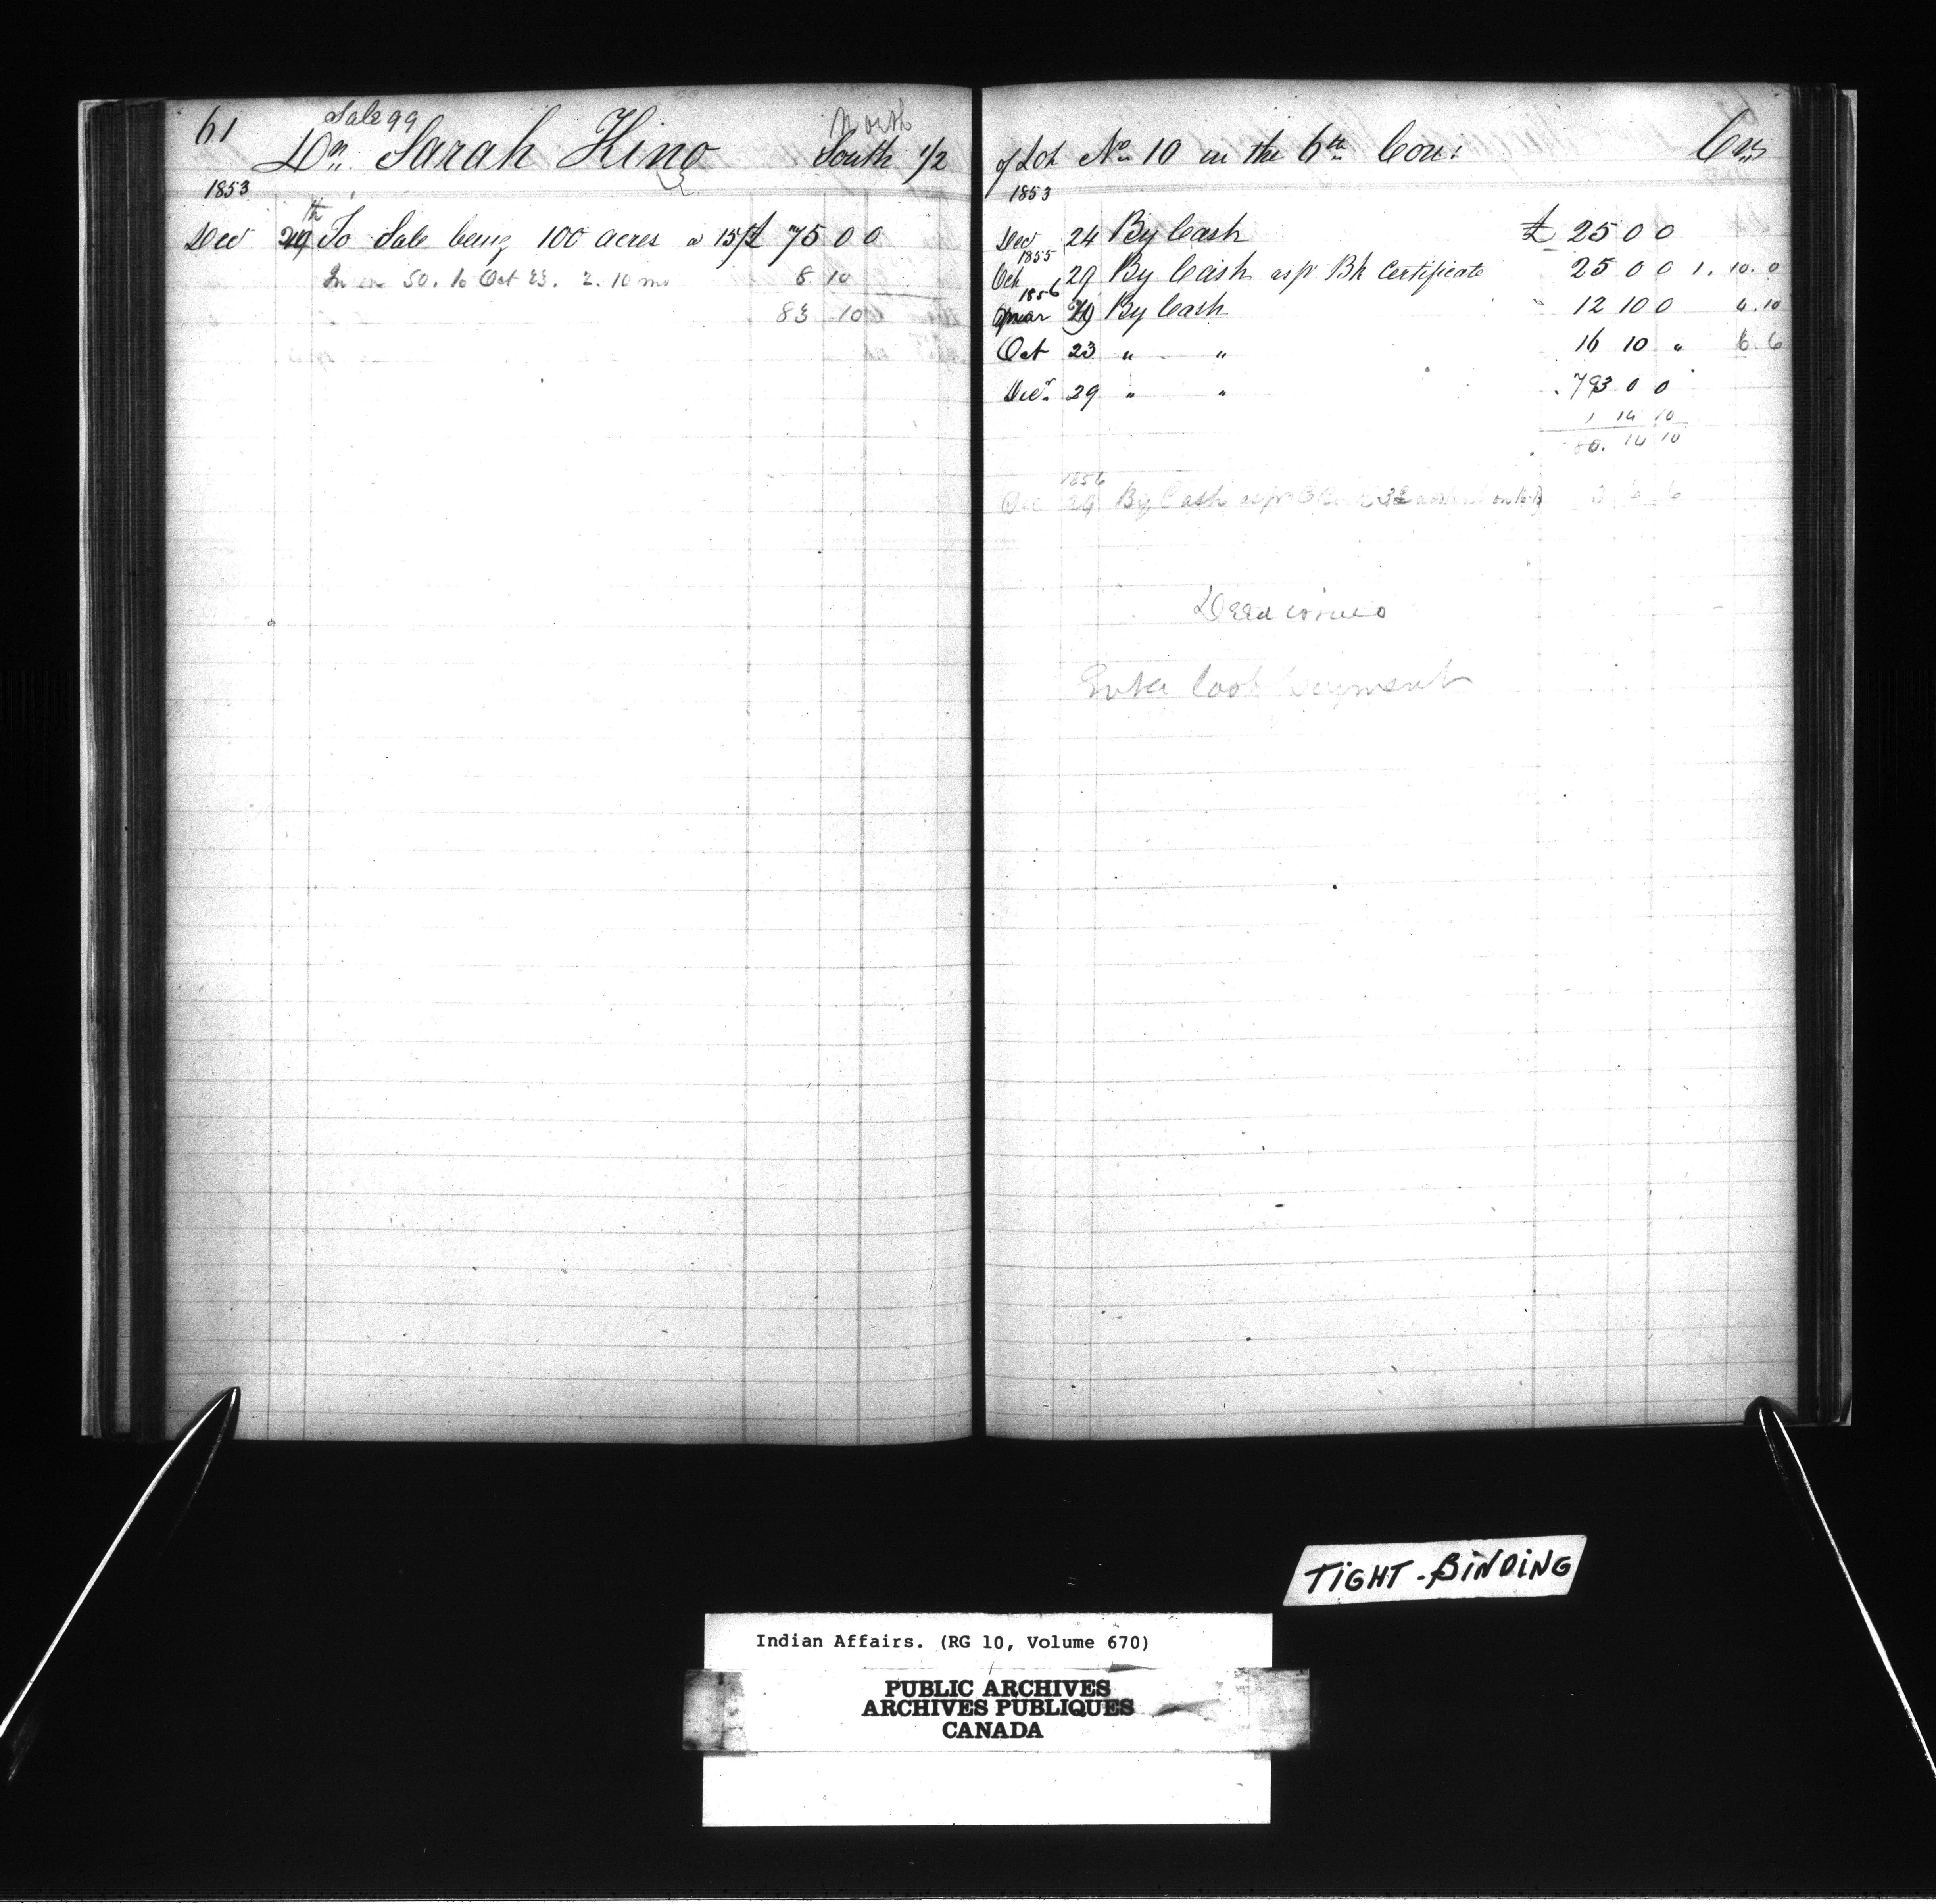 61
Sale 99
Dr. Sarah King North South 1/2
1853
Dec 29th To Sale being 100 acres a 15/ £ 75 0 0
50. to Oct 23. 2.10 mo 8 10
83 10
of Lot No 10 in the 6th Con: Crs
1853
Dec 24 By Cash £ 25 0 0
1855
Oct 29 By Cash as pr Bk Certificate 25 0 0 1. 10. 0
1856
Mar By Cash 12 10 0 4. 10
Oct 23 " " 16 10 " 6. 6
Decr. 29 " " 0 0
1 14 10
14 10
1856
Dec 29 By Cash as pr
Deed issued
Enter last payment
TIGHT-BINDING
Indian Affairs. (RG 10, Volume 670)
PUBLIC ARCHIVES
ARCHIVES PUBLIQUES
CANADA